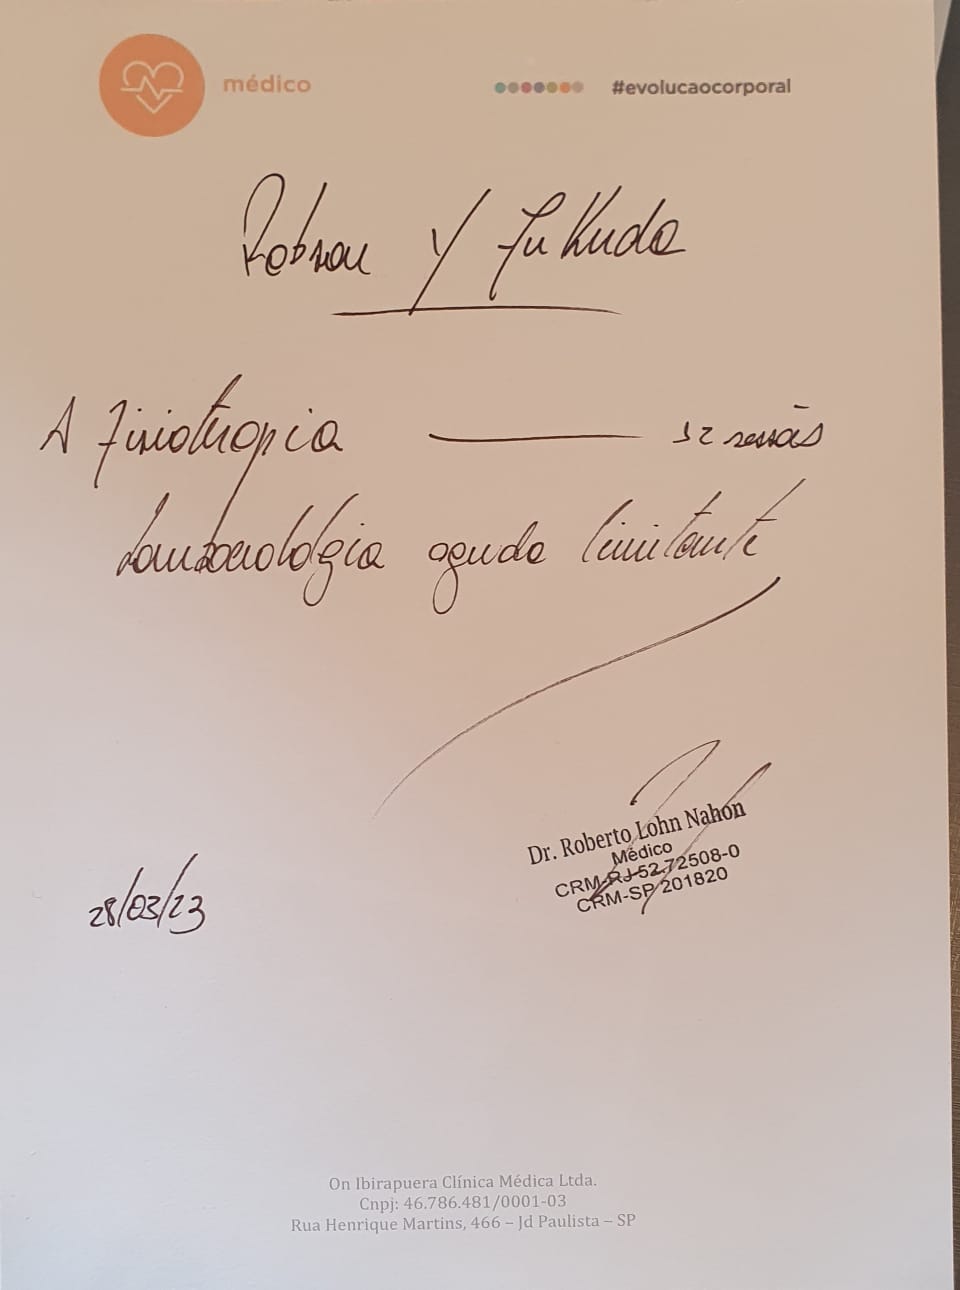 médico
#evolucaocorporal
Robson Y Fukuda
A Fisioterapia — 12 sessões
aguda limitante
Dr. Roberto Lohn Nahon
Médico
CRM-RJ-52.72508-0
CRM-SP 201820
28/03/23
On Ibirapuera Clínica Médica Ltda.
Cnpj: 46.786.481/0001-03
Rua Henrique Martins, 466 – Jd Paulista – SP